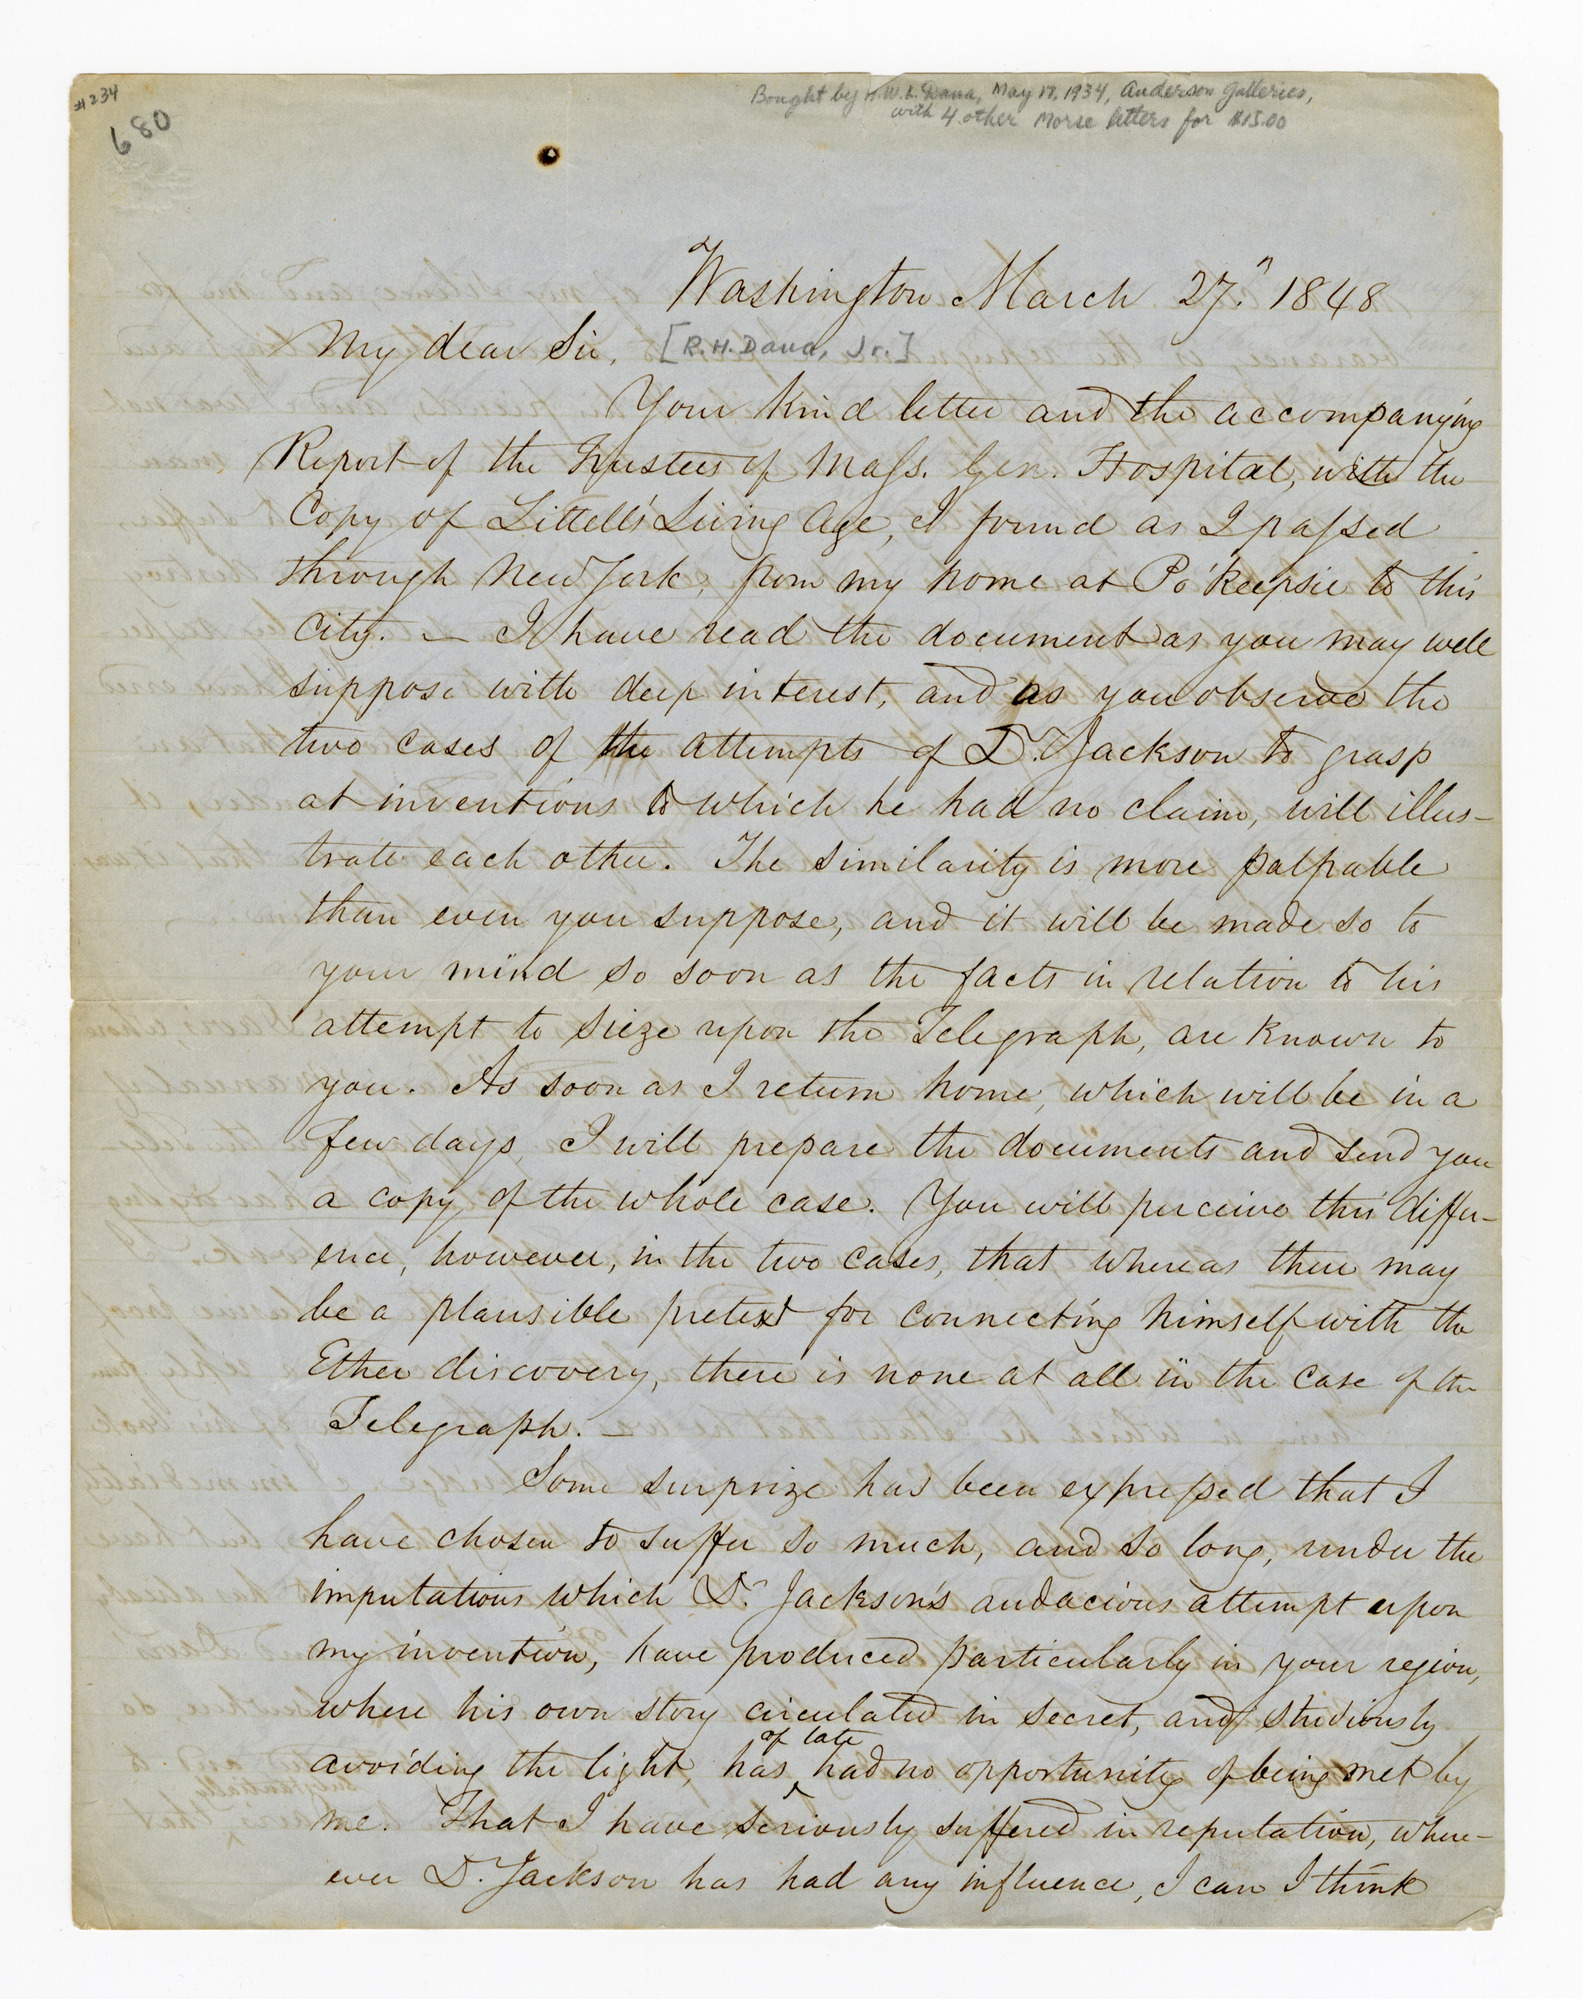 #234
680
Bought by H.W.L. Dana, May 17, 1934, Anderson Galleries,
with 4 other Morse letters for $15.00
Washington March 27. 1848
My dear Sir, [R.H. Dana, Jr.]
Your kind letter and the accompanying
Report of the Trustees of Mass. Gen. Hospital, with the
Copy of Littell's Living Age, I found as I passed
through New York, from my home at Po'keepsie to this
city. — I have read the document as you may well
suppose with deep interest, and as you observe the
two cases of the attempts of Dr. Jackson to grasp
at inventions to which he had no claim, will illus-
trate each other. The similarity is more palpable
than even you suppose, and it will be made so to
your mind so soon as the facts in relation to his
attempt to sieze upon the Telegraph, are known to
you. As soon as I return home, which will be in a
few days, I will prepare the documents and send you
a copy of the whole case. You will perceive this differ-
ence, however, in the two cases, that whereas there may
be a plausible pretext for connecting himself with the
Ether discovery, there is none at all in the case of the
Telegraph. —
Some surprize has been expressed that I
have chosen to suffer so much, and so long, under the
imputations which Dr. Jackson's audacious attempt upon
my invention, have produced particularly in your region,
where his own story circulated in secret, and studiously
avoiding the light, has of late had no opportunity of being met by
me. That I have seriously suffered in reputation, where-
ever Dr. Jackson has had any influence, I can I think